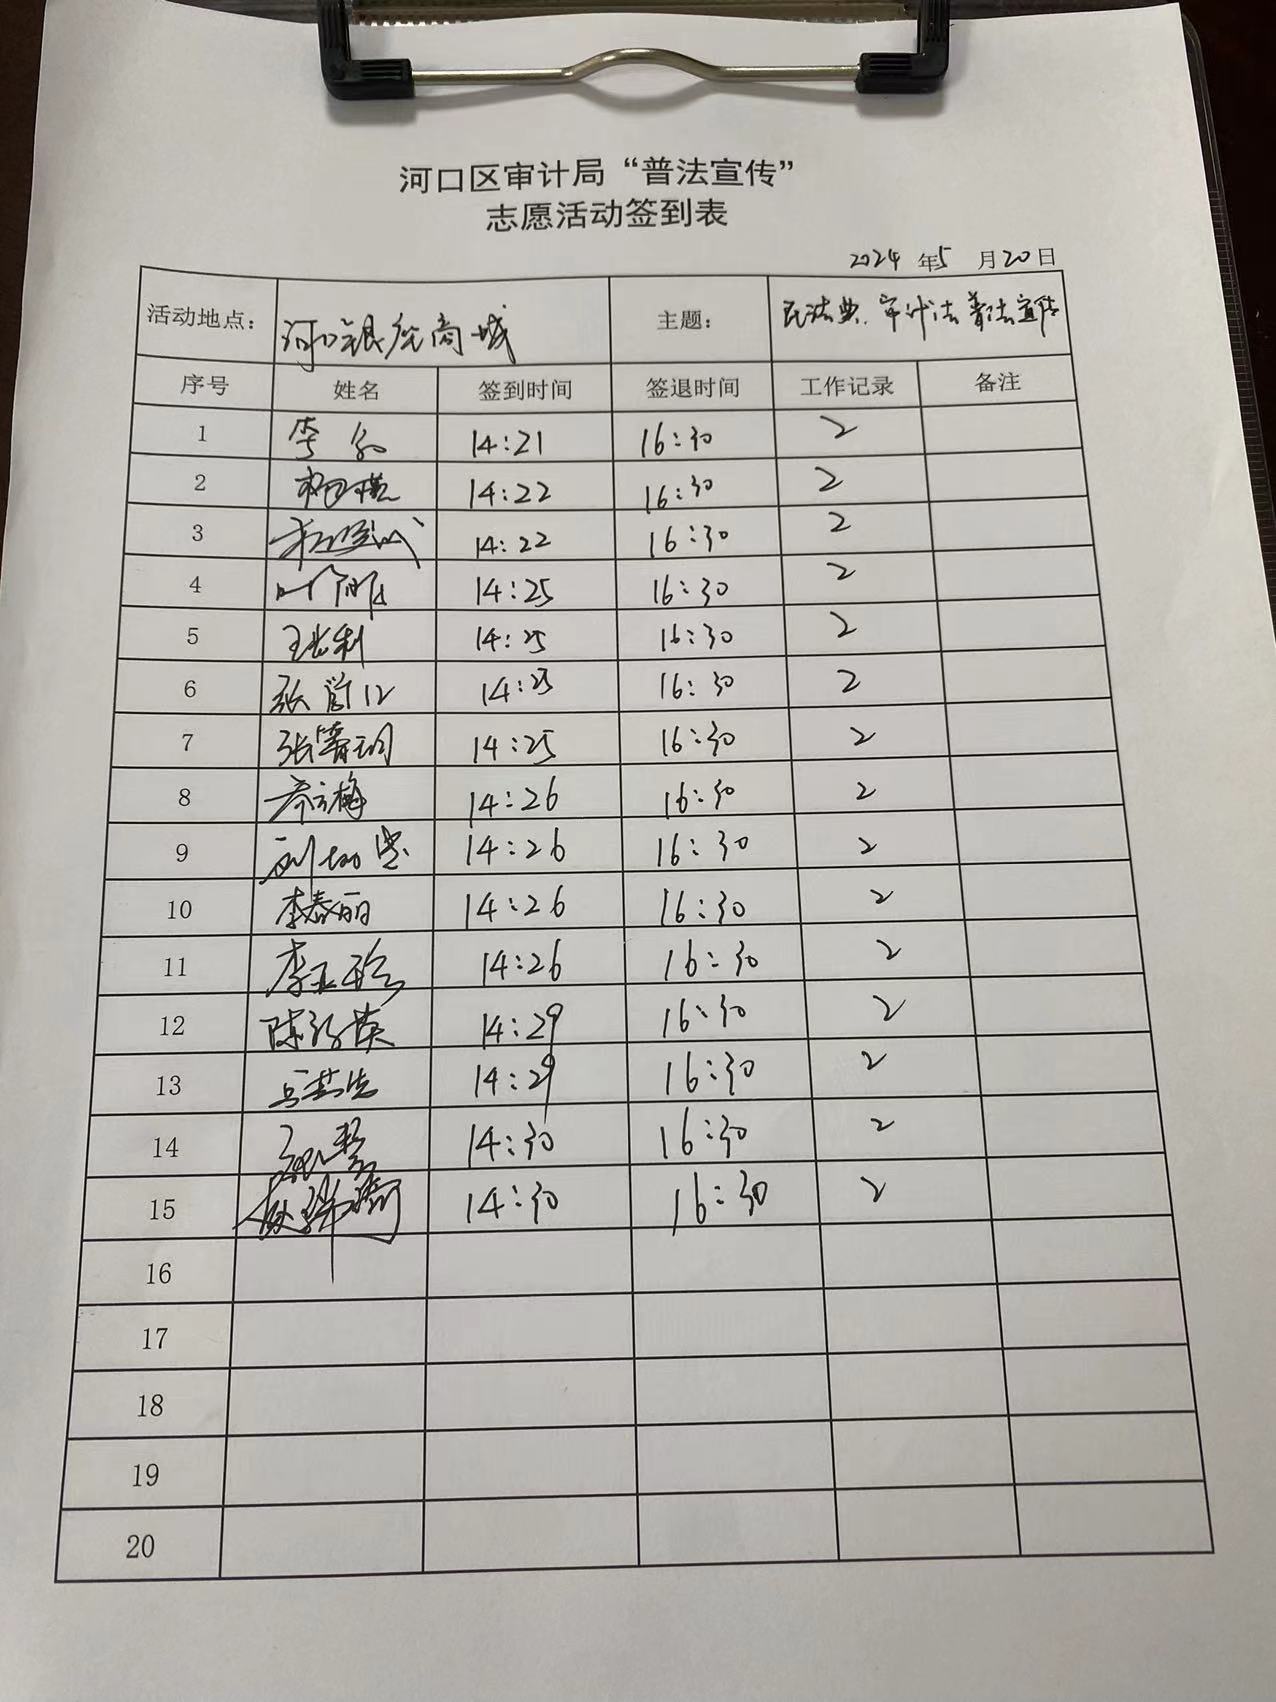 河口区审计局“普法宣传”
志愿活动签到表
2024 年5 月20日
活动地点： 河口银座商城 主题： 民法典、审计法普法宣传
序号 姓名 签到时间 签退时间 工作记录 备注
1 李 14:21 16:30 2
2 14:22 16:30 2
3 14:22 16:30 2
4 14:25 16:30 2
5 王长利 14:25 16:30 2
6 张 14:25 16:30 2
7 张 14:25 16:30 2
8 14:26 16:30 2
9 刘 14:26 16:30 2
10 李春丽 14:26 16:30 2
11 李玉珍 14:26 16:30 2
12 陈 英 14:29 16:30 2
13 14:29 16:30 2
14 14:30 16:30 2
15 14:30 16:30 2
16
17
18
19
20